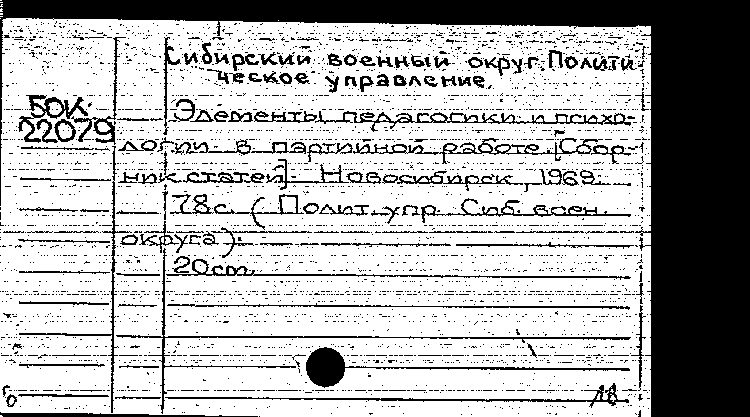 Сибирский военный округ. Полити-
ческое управление.
БОК.
22079
Элементы педагогики и психо-
логии в партийной работе. [Сбор-
ник статей]. Новосибирск, 1969.
78с. (Полит. упр. Сиб. воен.
округа).
20см.